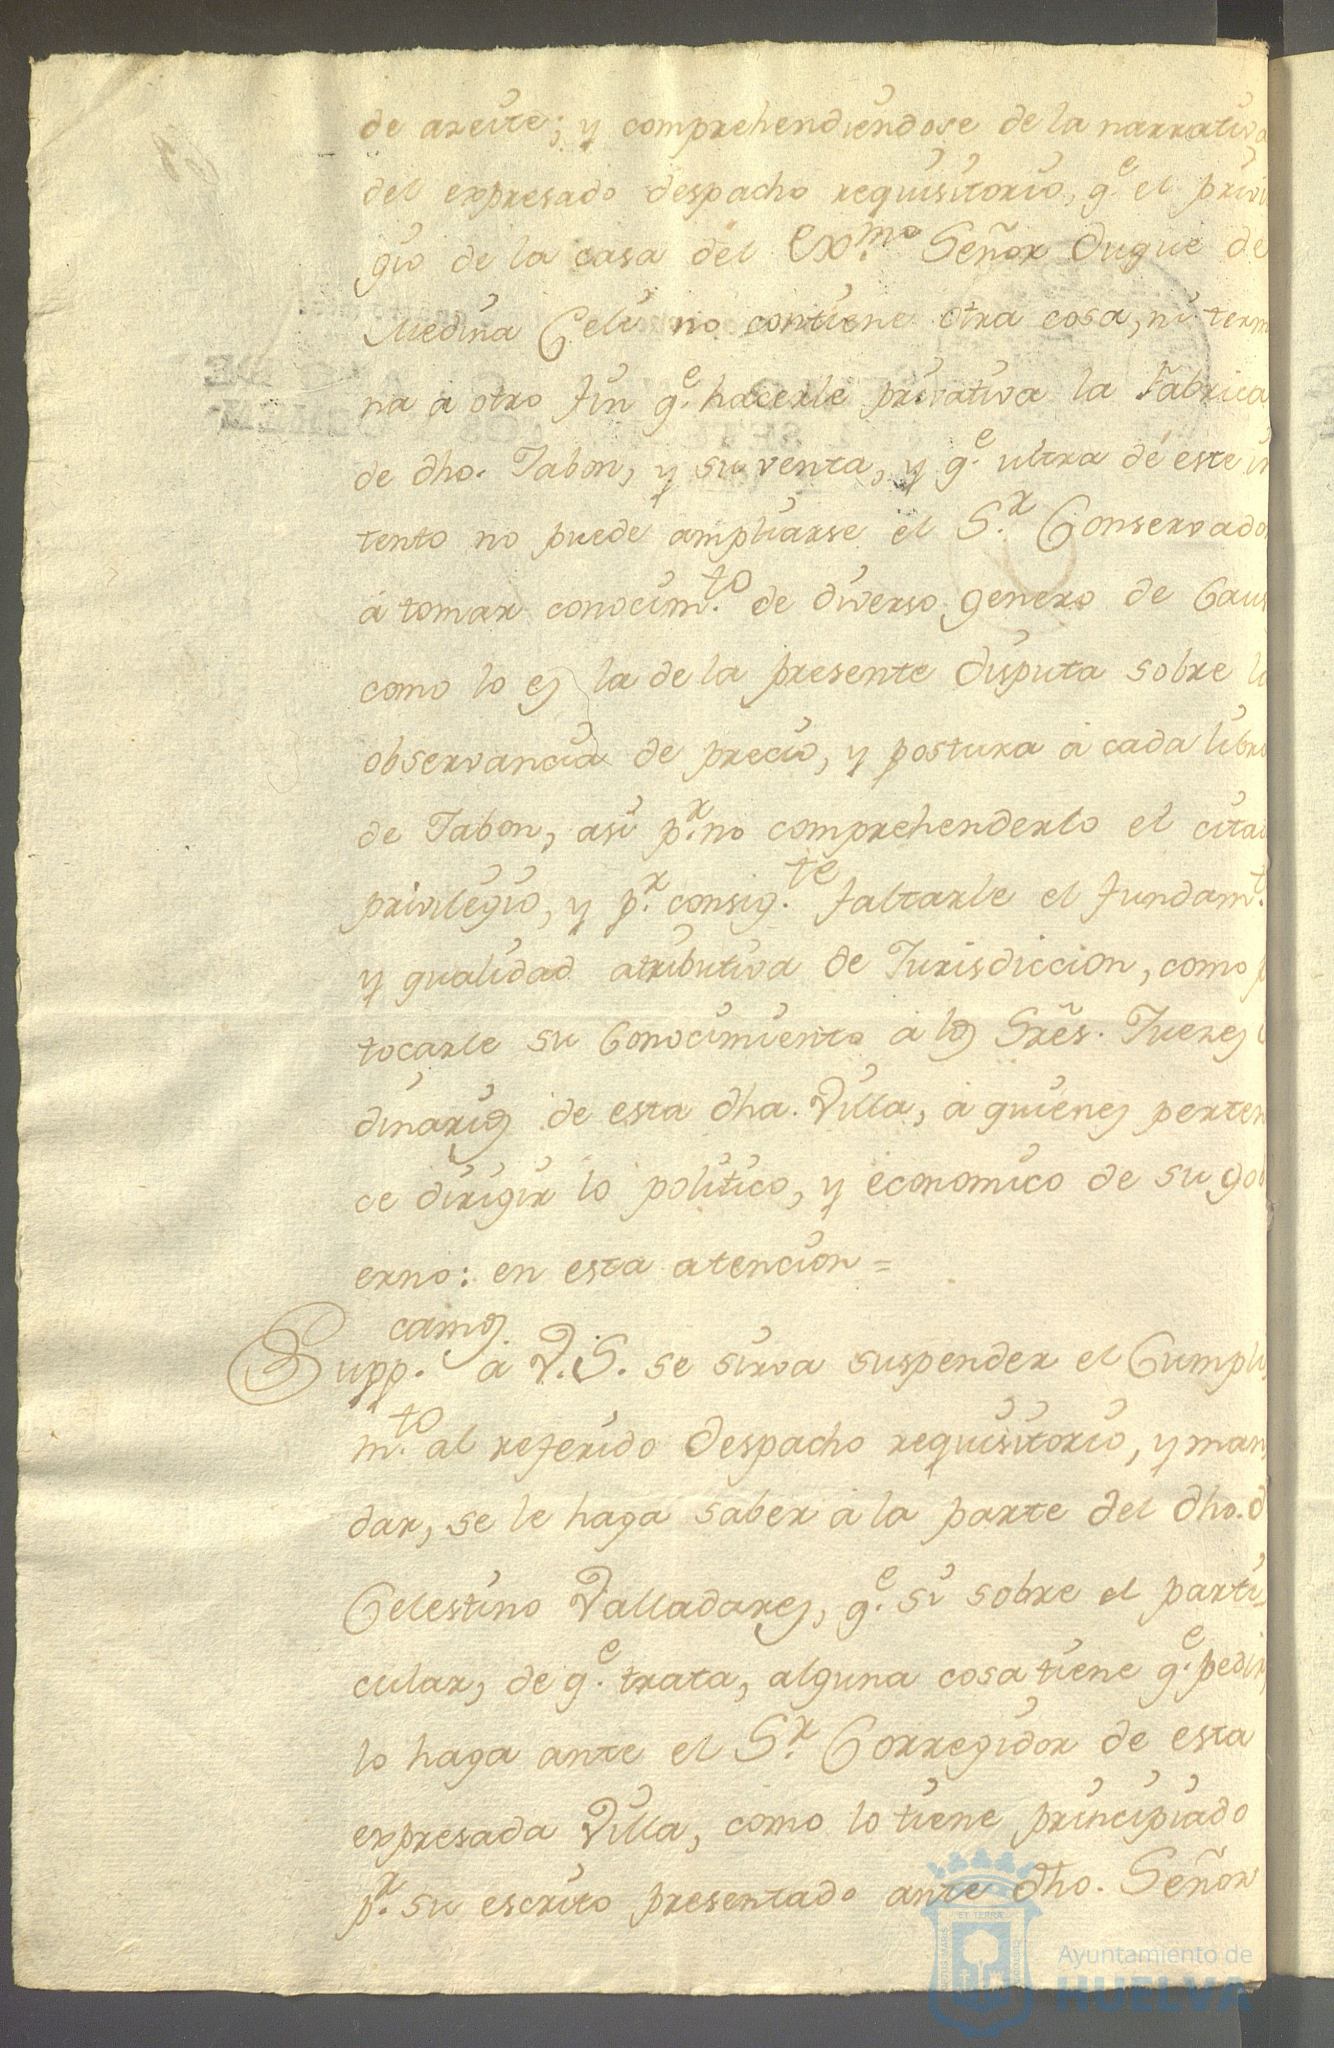 de azeite; y comprehendiendose de la narrativa
del expresado despacho requisitorio, q.e el privi
gio de la casa del Exmo. Señor Duque de
Medina Celi no contiene otra cosa, ni termi
na à otro fin q.e hacerle privativa la Fabrica
de dho. Jabon, y su venta, y q.e ultra de este in
tento no puede ampliarse el S.r Conservador
à tomar conocim.to de diverso genero de Caus
como lo es la de la presente disputa sobre la
observancia de precio, y postura à cada libra
de Jabon, asi p.r no comprehenderlo el citad
privilegio, y p.r consig.te faltarle el fundam.t
y qualidad atributiva de Jurisdiccion, como p
tocarle su Conocimiento à los Sres. Juezes
dinarios de esta dha. Villa, à quienes perten
ce dirigir lo politico, y economico de su gob
erno: en esta atencion =
Supp.camos à V.S. se sirva suspender el Cumpli
m.to al referido despacho requisitorio, y man
dar, se le haga saber à la parte del dho. d
Celestino Valladares, q.e si sobre el parti-
cular, de q.e trata, alguna cosa tiene q.e pedir
lo haga ante el S.r Corregidor de esta
expresada Villa, como lo tiene principiado
p.r su escrito presentado ante dho. Señor
Ayuntamiento de
HUELVA